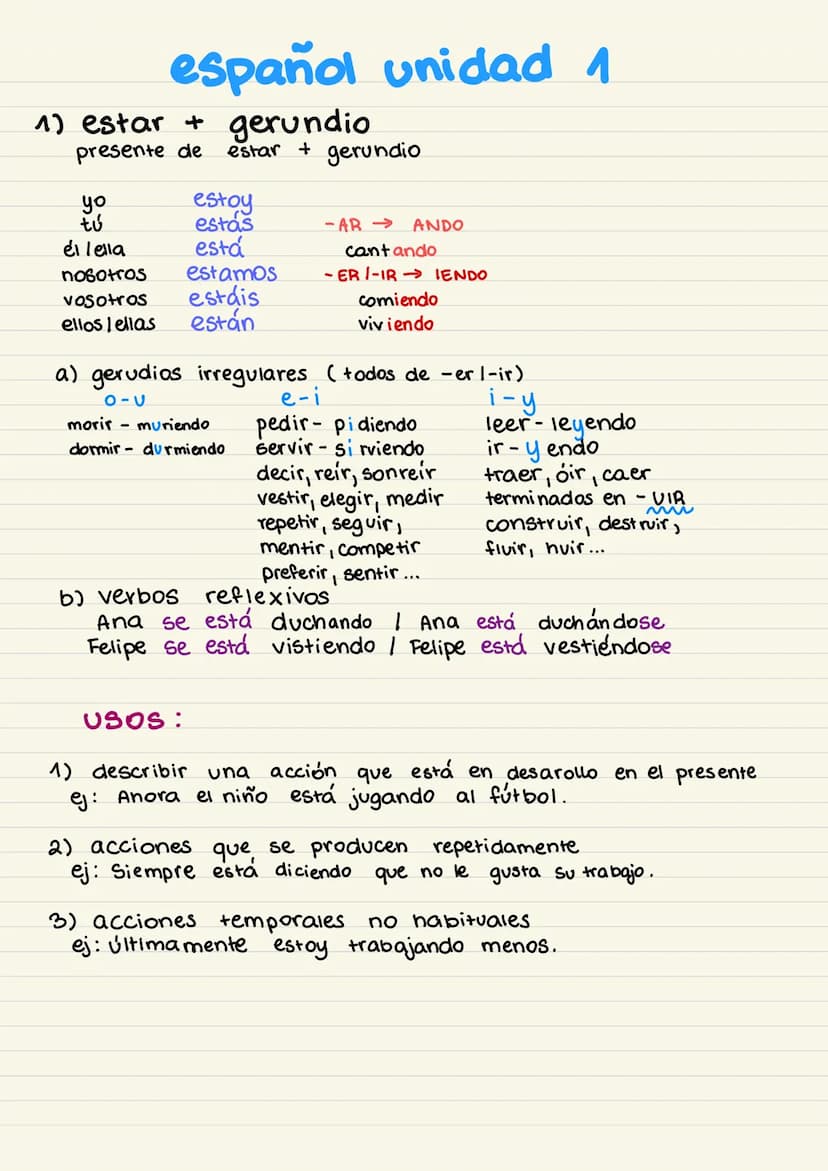 español unidad 1
1) estar + gerundio
presente de estar + gerundio
yo estoy
tú estás -AR → ANDO
él/ella está cantando
nosotros estamos -ER/-IR → IENDO
vosotros estáis comiendo
ellos/ellas están viviendo
a) gerudios irregulares (todos de -er/-ir)
o-u e-i i-y
morir - muriendo pedir - pidiendo leer - leyendo
dormir - durmiendo servir - sirviendo ir - yendo
decir, reír, sonreír traer, óir, caer
vestir, elegir, medir terminados en -UIR
repetir, seguir, construir, destruir,
mentir, competir fluir, huir...
preferir, sentir...
b) verbos reflexivos
Ana se está duchando / Ana está duchándose
Felipe se está vistiendo / Felipe está vestiéndose
USOS:
1) describir una acción que está en desarollo en el presente
ej: Ahora el niño está jugando al fútbol.
2) acciones que se producen repetidamente
ej: Siempre está diciendo que no le gusta su trabajo.
3) acciones temporales no habituales
ej: últimamente estoy trabajando menos.